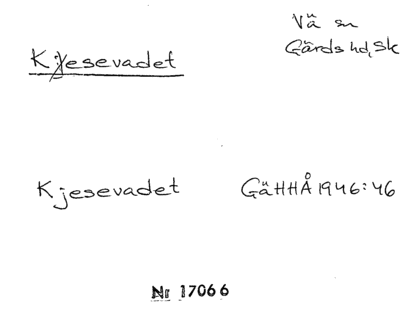 Kjesevadet
Vä sn
Gärds hd, Sk
Kjesevadet GäHHÅ 1946:46
Nr 17066